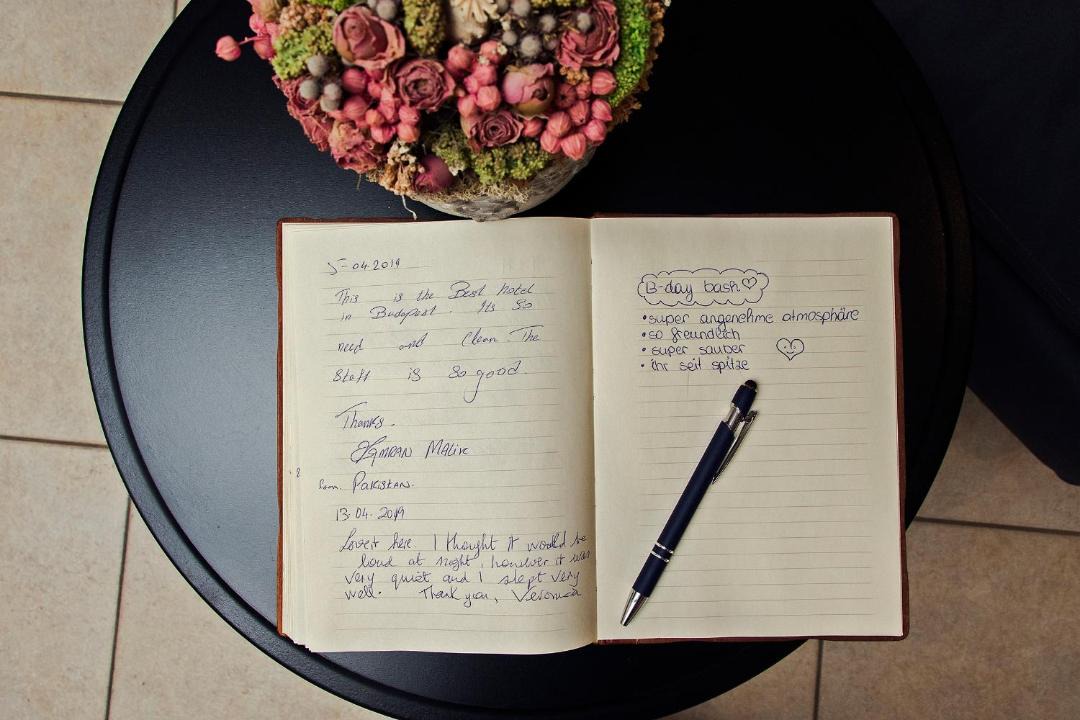 5-04.2019
This is the Best hotel
in Budapest. Its So
need and Clean. The
Staff is So good
Thanks.
MALik
from PakiStAN.
13.04.2019
Love it here. I thought it would be
loud at night, however it was
very quiet and I slept very
well. Thank you, Veronica
B-day bash♡
•super angenehme atmosphäre
•so freundlich
•super sauber
•ihr seit spitze